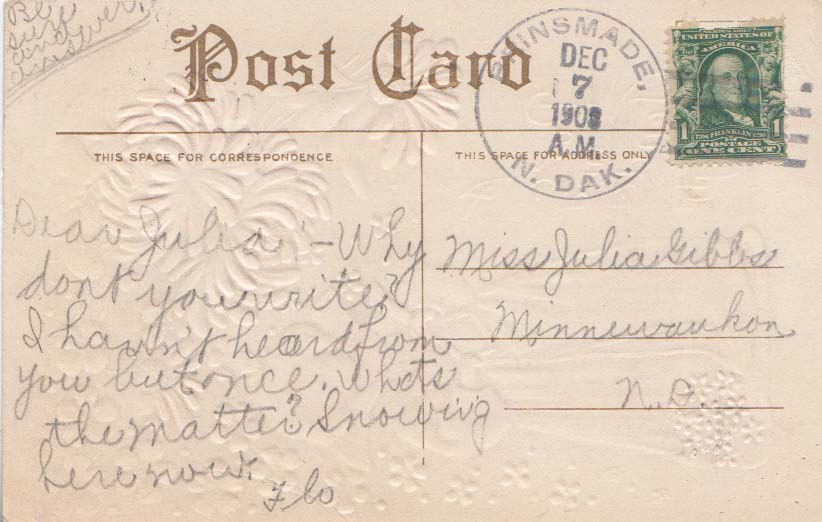 Be
sure
and
answer.
Post Card
BRINSMADE,
DEC
7
1908
A.M.
N. DAK.
SERIES 1902
UNITED STATES OF
AMERICA
1
FRANKLIN
POSTAGE
ONE CENT
1
THIS SPACE FOR CORRESPONDENCE
THIS SPACE FOR ADDRESS ONLY
Dear Julia:- Why
dont you write?
I havn't heard from
you but once. Whats
the matter? Snowing
here now.
Flo
Miss Julia Gibbs
Minnewaukon
N.D.